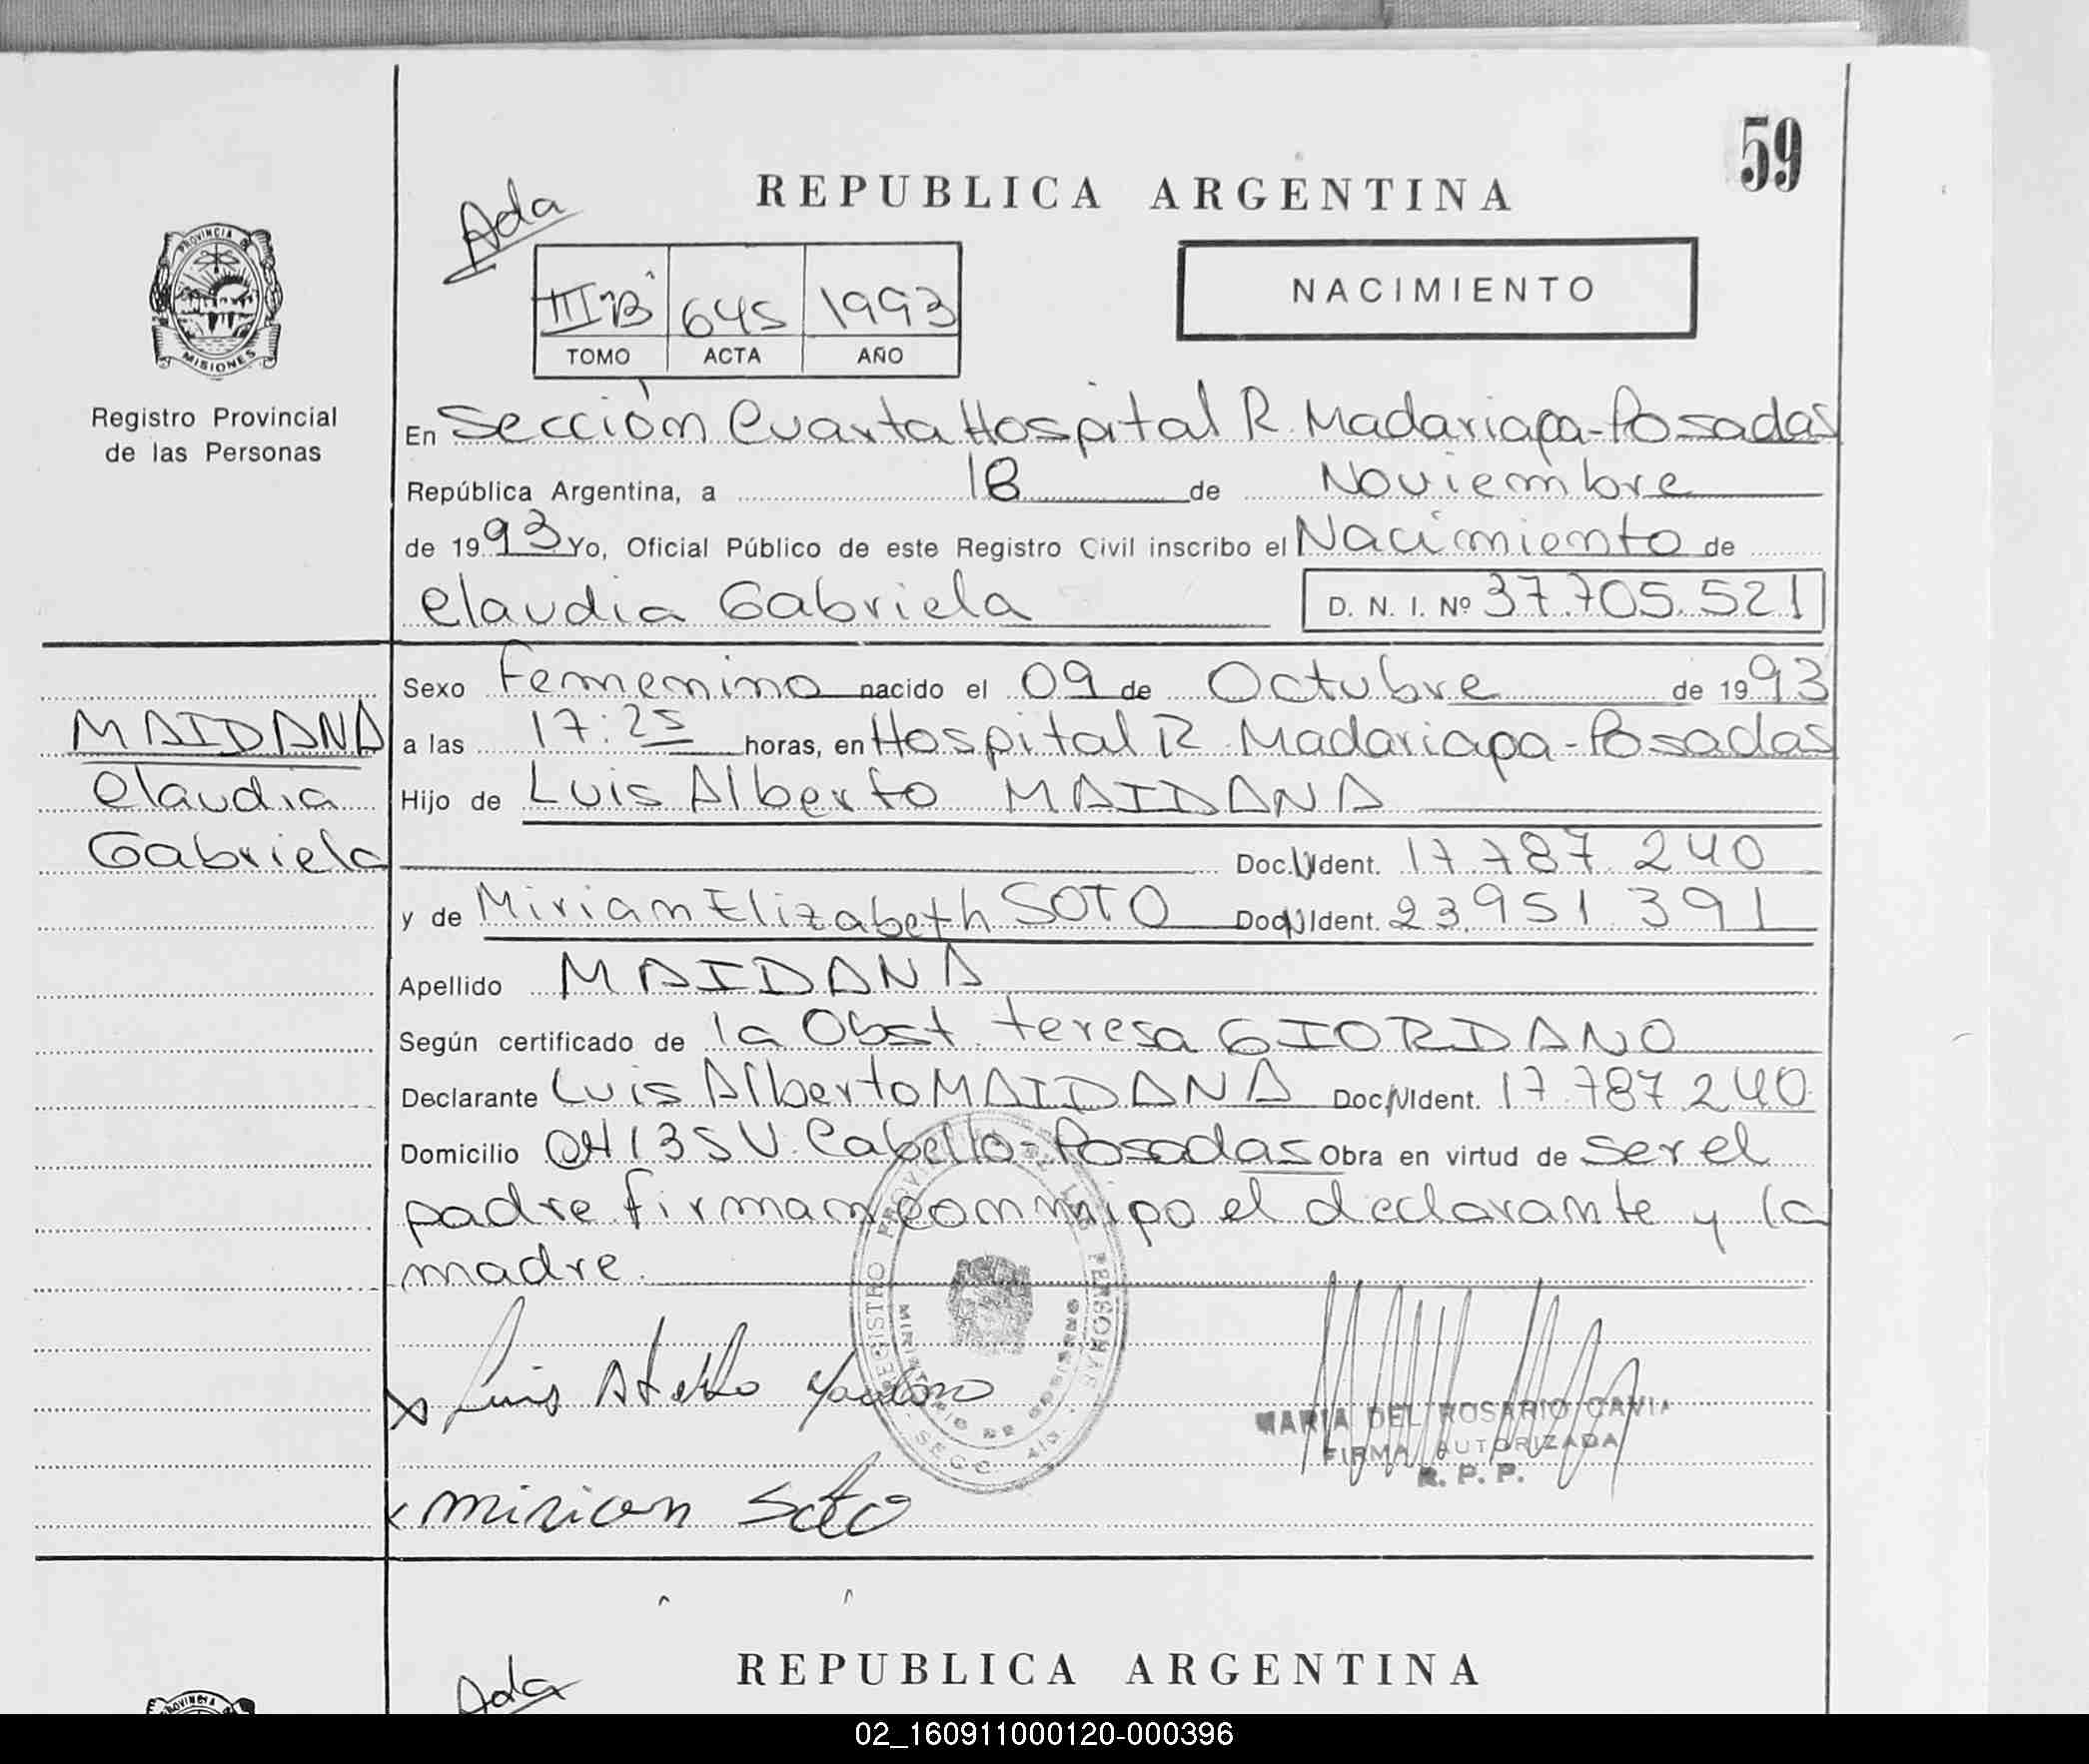 59
REPUBLICA ARGENTINA
Ada
NACIMIENTO
III B 645 1993
TOMO ACTA AÑO
PROVINCIA DE
MISIONES
Registro Provincial
de las Personas
En Sección Cuarta Hospital R. Madariaga-Posadas
República Argentina, a 18 de Noviembre
de 1993 Yo, Oficial Público de este Registro Civil inscribo el Nacimiento de
Claudia Gabriela D. N. I. Nº 37.705.521
MAIDANA
Claudia
Gabriela
Sexo Femenino nacido el 09 de Octubre de 1993
a las 17:25 horas, en Hospital R. Madariaga-Posadas
Hijo de Luis Alberto MAIDANA
Doc. Ident. 17.787.240
y de Mirian Elizabeth SOTO Doc. Ident. 23.951.391
Apellido MAIDANA
Según certificado de la Obst. Teresa GIORDANO
Declarante Luis Alberto MAIDANA Doc. Ident. 17.787.240
Domicilio CH 135 V. Cabello-Posadas Obra en virtud de ser el
padre firman conmigo el declarante y la
madre.
REGISTRO PERSONAS
MINISTERIO DE GOBIERNO
Luis Alberto Maidana
MARIA DEL ROSARIO CAVIA
FIRMA AUTORIZADA
R. P. P.
mirian Soto
REPUBLICA ARGENTINA
Ada
PROVINCIA
02_160911000120-000396